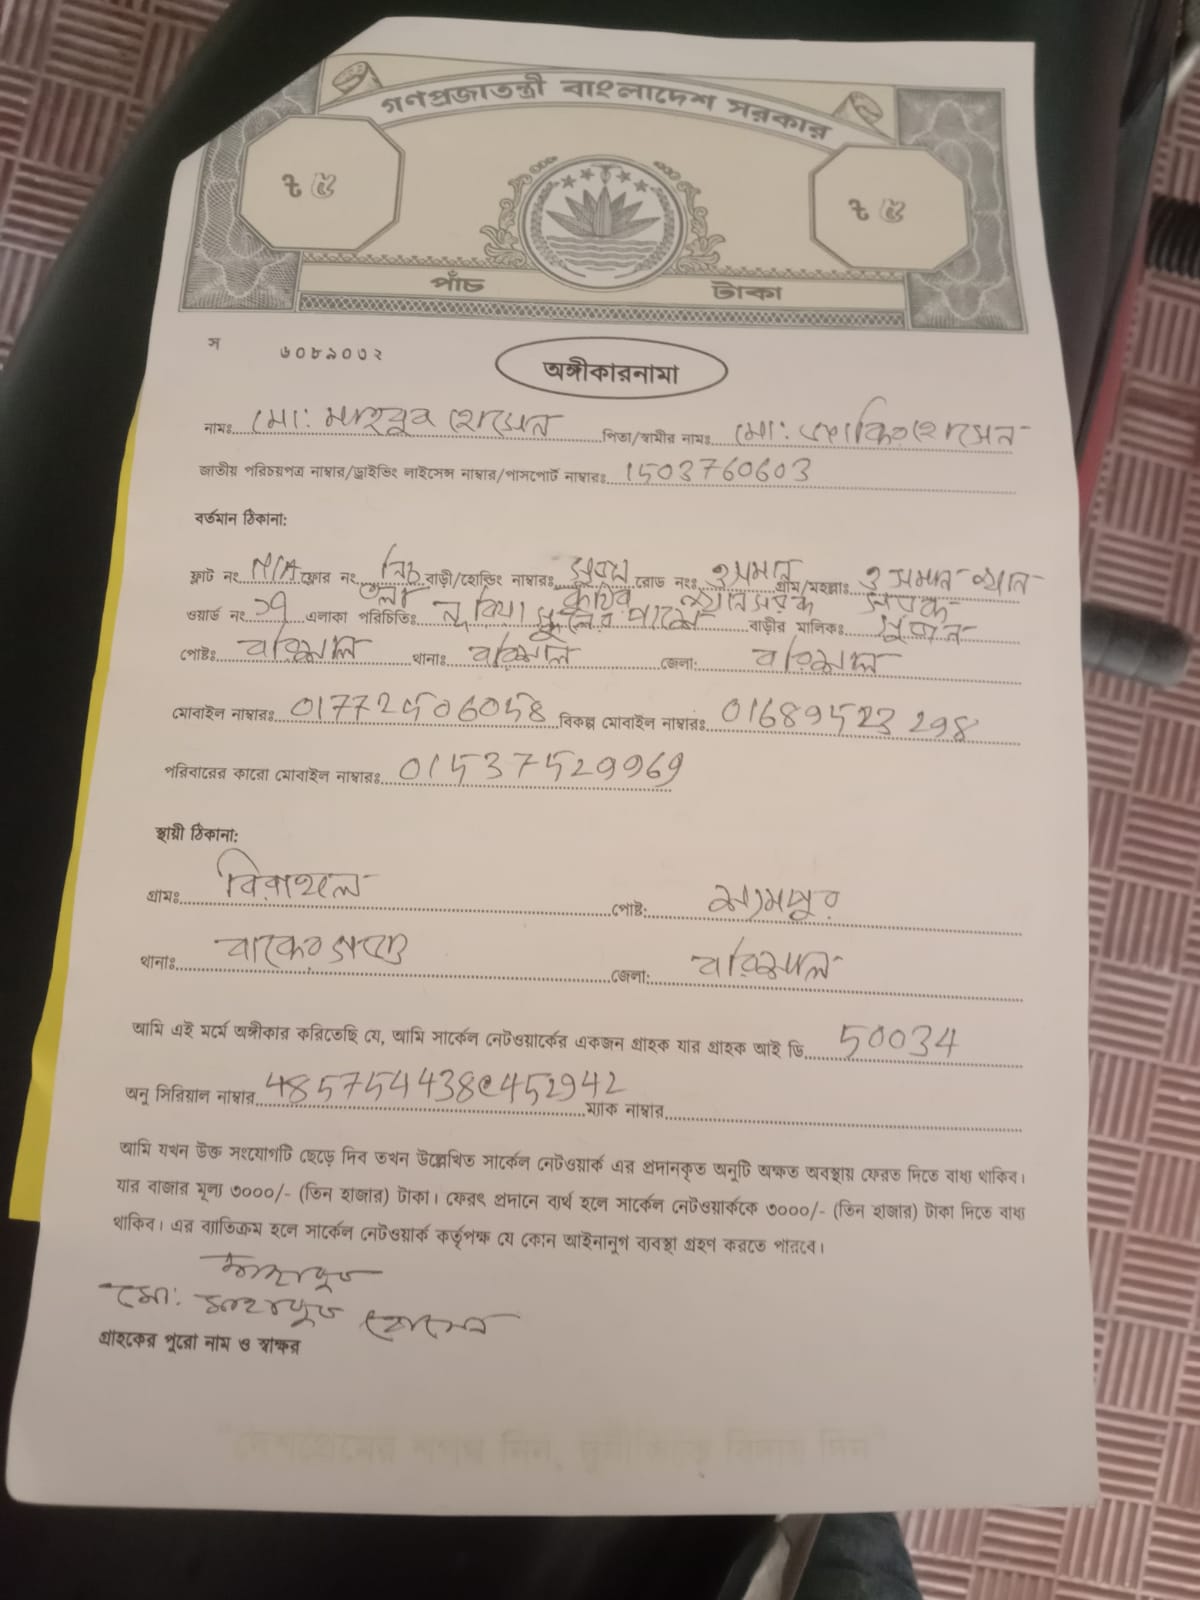 গণপ্রজাতন্ত্রী বাংলাদেশ সরকার
৳ ৫ ৳ ৫
পাঁচ টাকা
স ৬০৮৯০৩২
অঙ্গীকারনামা
নামঃ মো: মাহবুব হোসেন পিতা/স্বামীর নামঃ মো: জাকির হোসেন
জাতীয় পরিচয়পত্র নাম্বার/ড্রাইভিং লাইসেন্স নাম্বার/পাসপোর্ট নাম্বারঃ 1503760603
বর্তমান ঠিকানা:
ফ্লাট নং N/A ফ্লোর নং নিচ তলা বাড়ী/হোল্ডিং নাম্বারঃ রোড নংঃ গ্রাম/মহল্লাঃ
ওয়ার্ড নং ১৭ এলাকা পরিচিতিঃ নূরিয়া স্কুলের পাশে বাড়ীর মালিকঃ
পোষ্টঃ বরিশাল থানাঃ বরিশাল জেলা: বরিশাল
মোবাইল নাম্বারঃ 01772506058 বিকল্প মোবাইল নাম্বারঃ 01689523298
পরিবারের কারো মোবাইল নাম্বারঃ 01537529969
স্থায়ী ঠিকানা:
গ্রামঃ পোষ্ট: শ্যামপুর
থানাঃ বাকেরগঞ্জ জেলা: বরিশাল
আমি এই মর্মে অঙ্গীকার করিতেছি যে, আমি সার্কেল নেটওয়ার্কের একজন গ্রাহক যার গ্রাহক আই ডি 50034
অনু সিরিয়াল নাম্বার 485754438C452942 ম্যাক নাম্বার
আমি যখন উক্ত সংযোগটি ছেড়ে দিব তখন উল্লেখিত সার্কেল নেটওয়ার্ক এর প্রদানকৃত অনুটি অক্ষত অবস্থায় ফেরত দিতে বাধ্য থাকিব।
যার বাজার মূল্য ৩০০০/- (তিন হাজার) টাকা। ফেরৎ প্রদানে ব্যর্থ হলে সার্কেল নেটওয়ার্ককে ৩০০০/- (তিন হাজার) টাকা দিতে বাধ্য
থাকিব। এর ব্যাতিক্রম হলে সার্কেল নেটওয়ার্ক কর্তৃপক্ষ যে কোন আইনানুগ ব্যবস্থা গ্রহণ করতে পারবে।
মো: হোসেন
গ্রাহকের পুরো নাম ও স্বাক্ষর